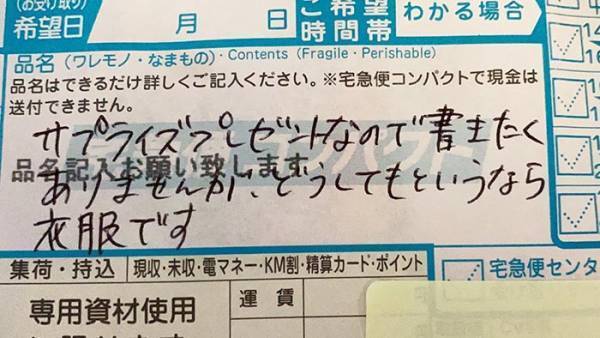 (お受け取り) 希望日 月 日 ご希望時間帯 わかる場合
品名(ワレモノ・なまもの)・Contents (Fragile・Perishable)
品名はできるだけ詳しくご記入ください。※宅急便コンパクトで現金は
送付できません。
サプライズプレゼントなので書きたく
品名記入お願い致します
ありませんが、どうしてもというなら
衣服です
集荷・持込 現収・未収・電マネー・KM割・精算カード・ポイント
宅急便センタ
専用資材使用 運賃